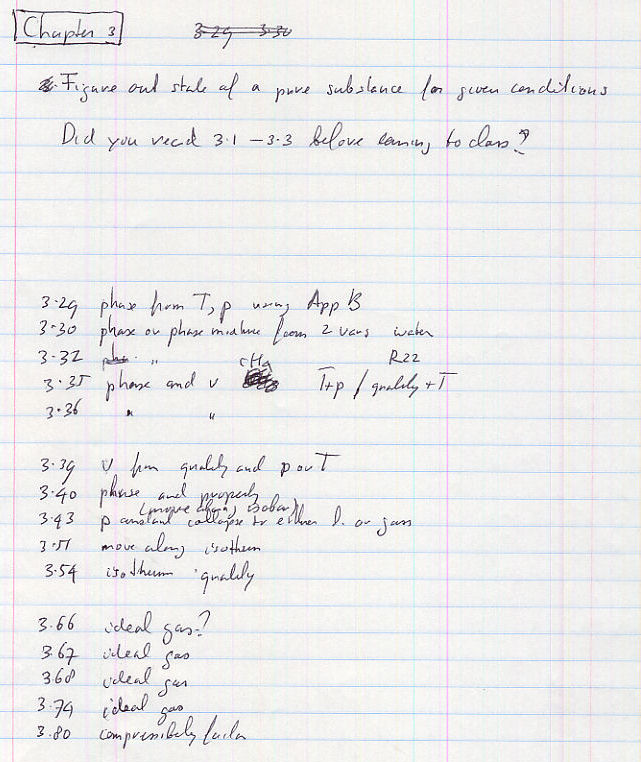 Chapter 3 3-29 3-30
Figure out state of a pure substance for given conditions
Did you read 3.1 - 3.3 before coming to class?
3.29 phase from T, p using App B
3.30 phase or phase mixture from 2 vars water
3.32 " R22
3.35 phase and v CH4 T+p / quality + T
3.36 " "
3.39 v from quality and p or T
3.40 phase and property
(move along isobar)
3.43 p constant collapse to either l. or gass
3.51 move along isotherm
3.54 isotherm quality
3.66 ideal gas?
3.67 ideal gas
3.68 ideal gas
3.79 ideal gas
3.80 compressibely factor